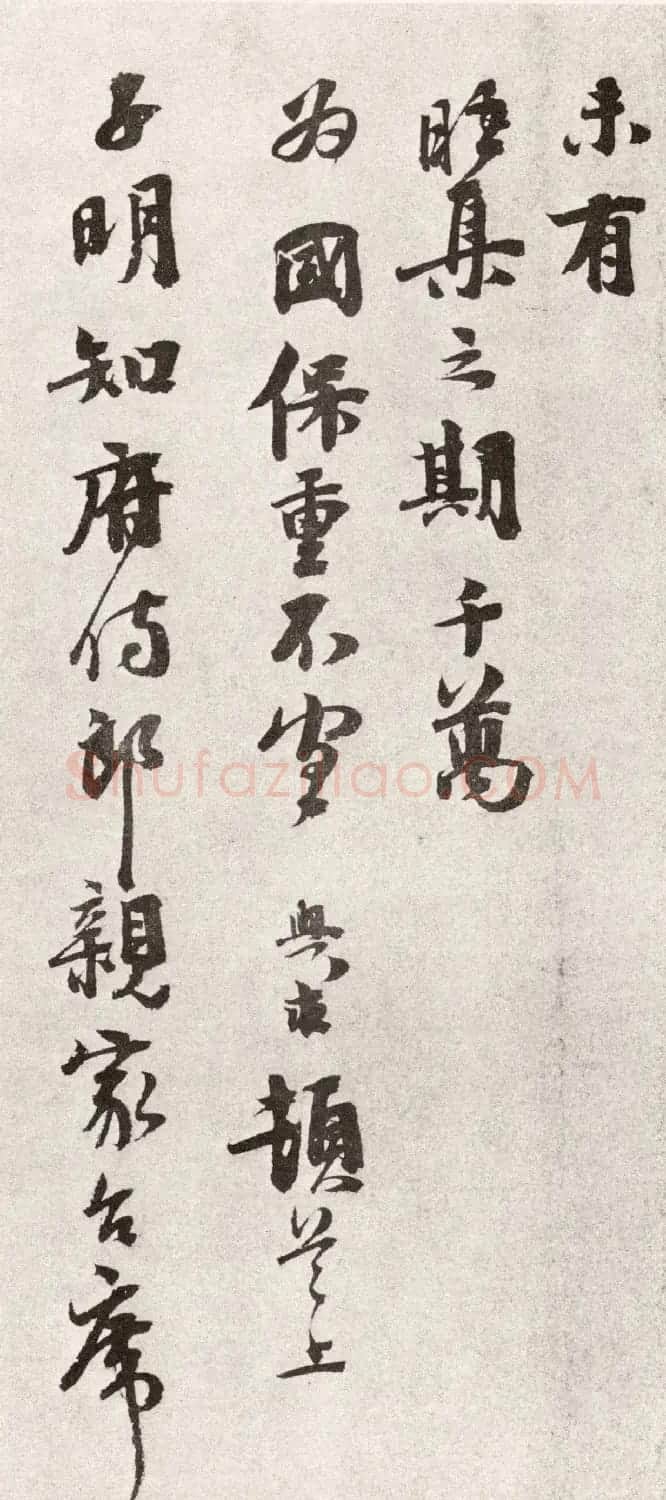 未有
集之期千萬
為國保重不宣 與求頓首上
子明知府侍郎親家台席
Shufaziliao.COM